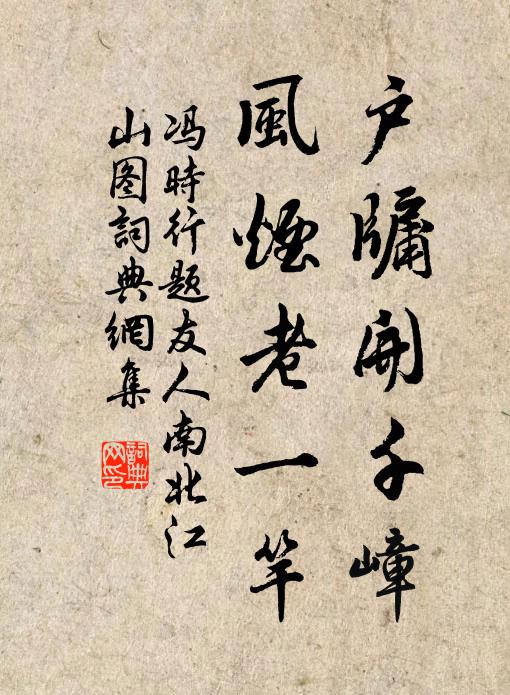 户牗開千嶂
風煙老一竿
冯時行题友人南北江
山图詞典網集
詞典网印